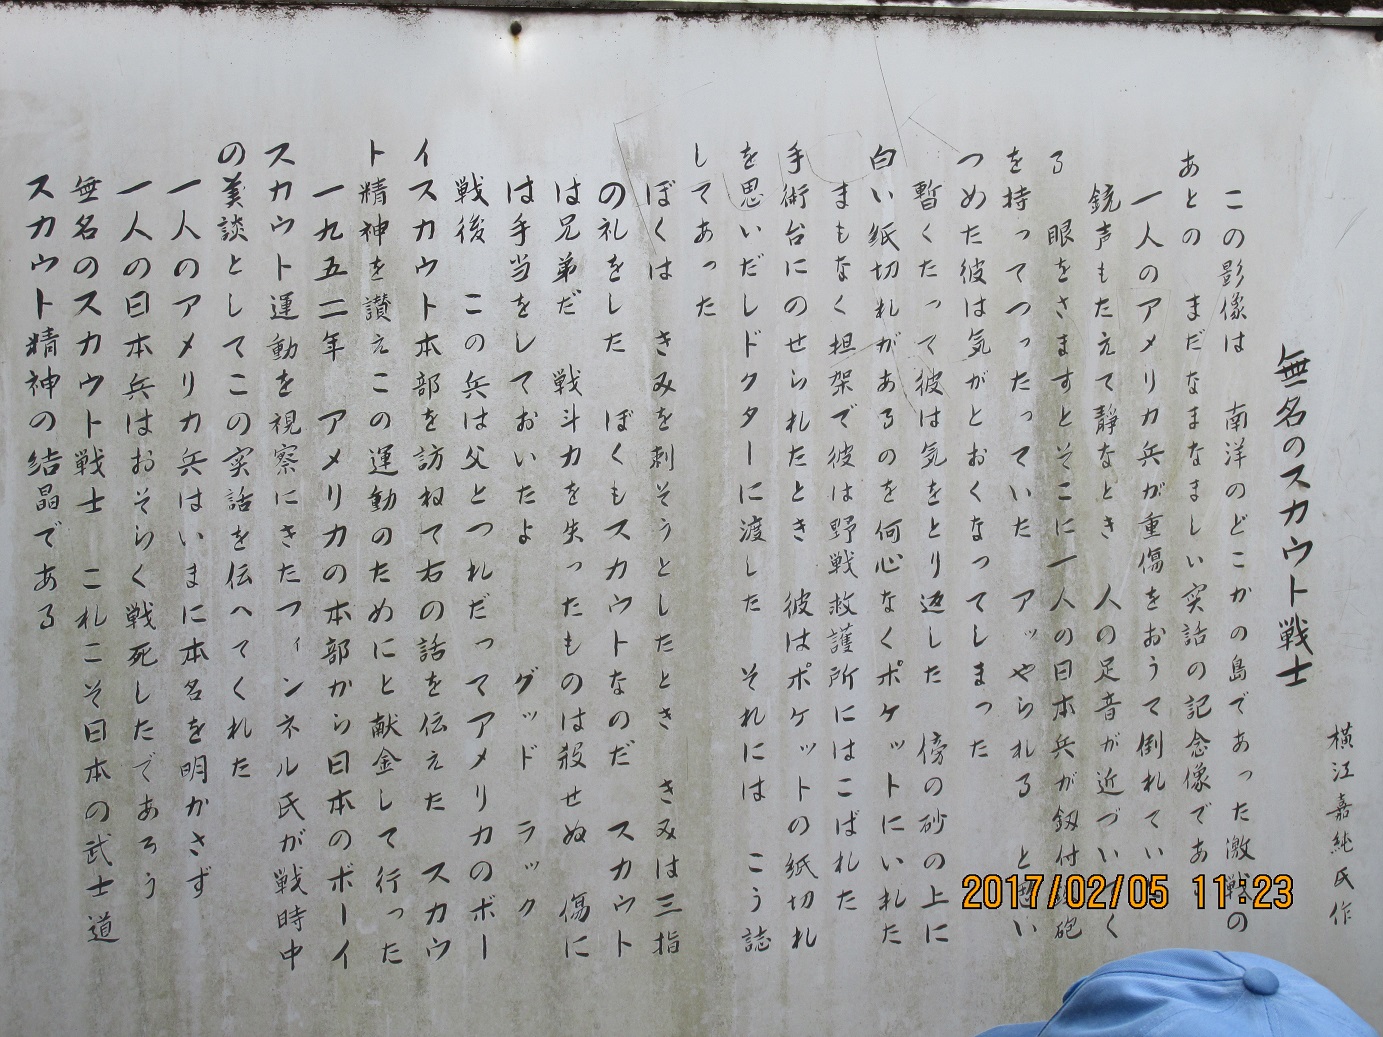 無名のスカウト戦士
横江嘉純氏作
この影像は　南洋のどこかの島であった激戦の
あとの　まだなまなましい実話の記念像であ
一人のアメリカ兵が重傷をおうて倒れてい
銃声もたえて静なとき　人の足音が近づいてく
る　眼をさますとそこに一人の日本兵が釼付鉄砲
を持ってつったっていた　アッやられる　と思い
つめた彼は気がとおくなってしまった
暫くたって彼は気をとり返した　傍の砂の上に
白い紙切れがあるのを何心なくポケットにいれた
まもなく担架で彼は野戦救護所にはこばれた
手術台にのせられたとき　彼はポケットの紙切れ
を思いだしドクターに渡した　それには　こう誌
してあった
ぼくは　きみを刺そうとしたとき　きみは三指
の礼をした　ぼくもスカウトなのだ　スカウト
は兄弟だ　戦斗力を失ったものは殺せぬ　傷に
は手当をしておいたよ　グッド　ラック
戦後　この兵は父とつれだってアメリカのボー
イスカウト本部を訪ねて右の話を伝えた　スカウ
ト精神を讃えこの運動のためにと献金して行った
一九五二年　アメリカの本部から日本のボーイ
スカウト運動を視察にきたフィンネル氏が戦時中
の美談としてこの実話を伝へてくれた
一人のアメリカ兵はいまに本名を明かさず
一人の日本兵はおそらく戦死したであろう
無名のスカウト戦士　これこそ日本の武士道
スカウト精神の結晶である
2017/02/05 11:23